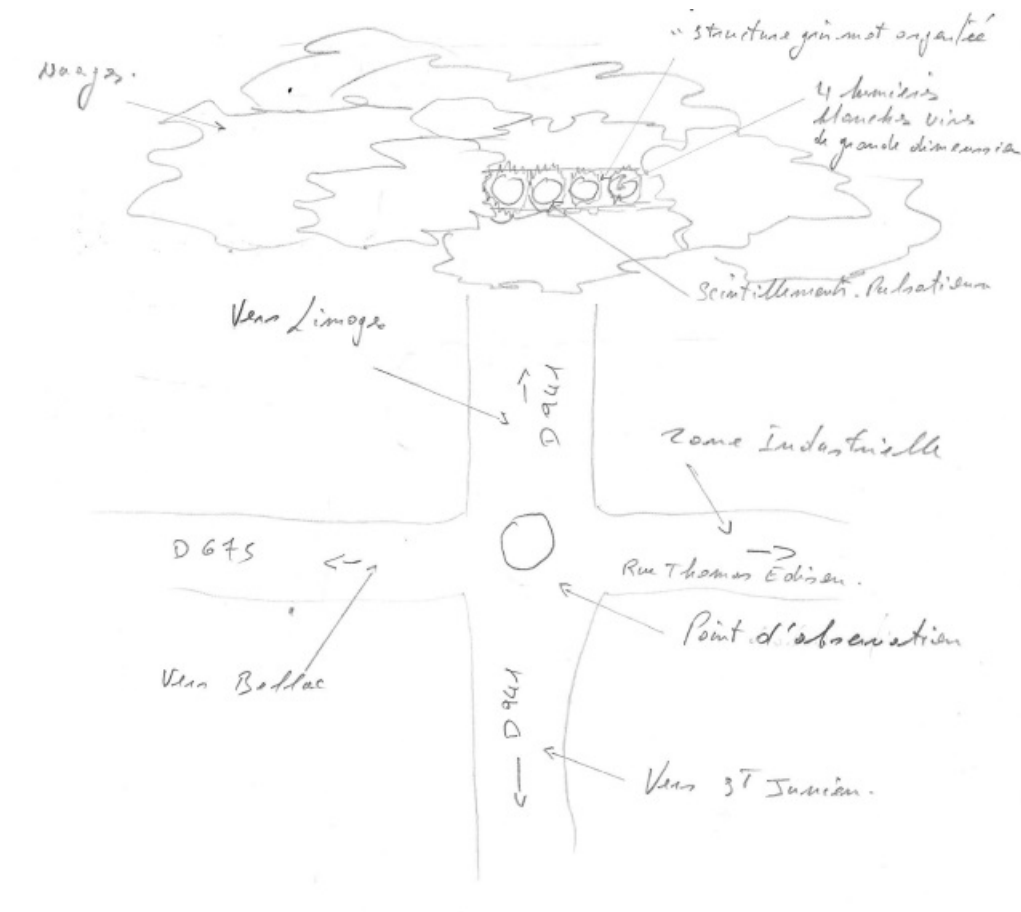 structure gris mat argentée
Nuages.
4 lumières
blanches vives
de grande dimension
Scintillements. Pulsations
Vers Limoges
D941
Zone Industrielle
D675
Rue Thomas Edison.
Point d'observation
Vers Bellac
D941
Vers ST Junien.